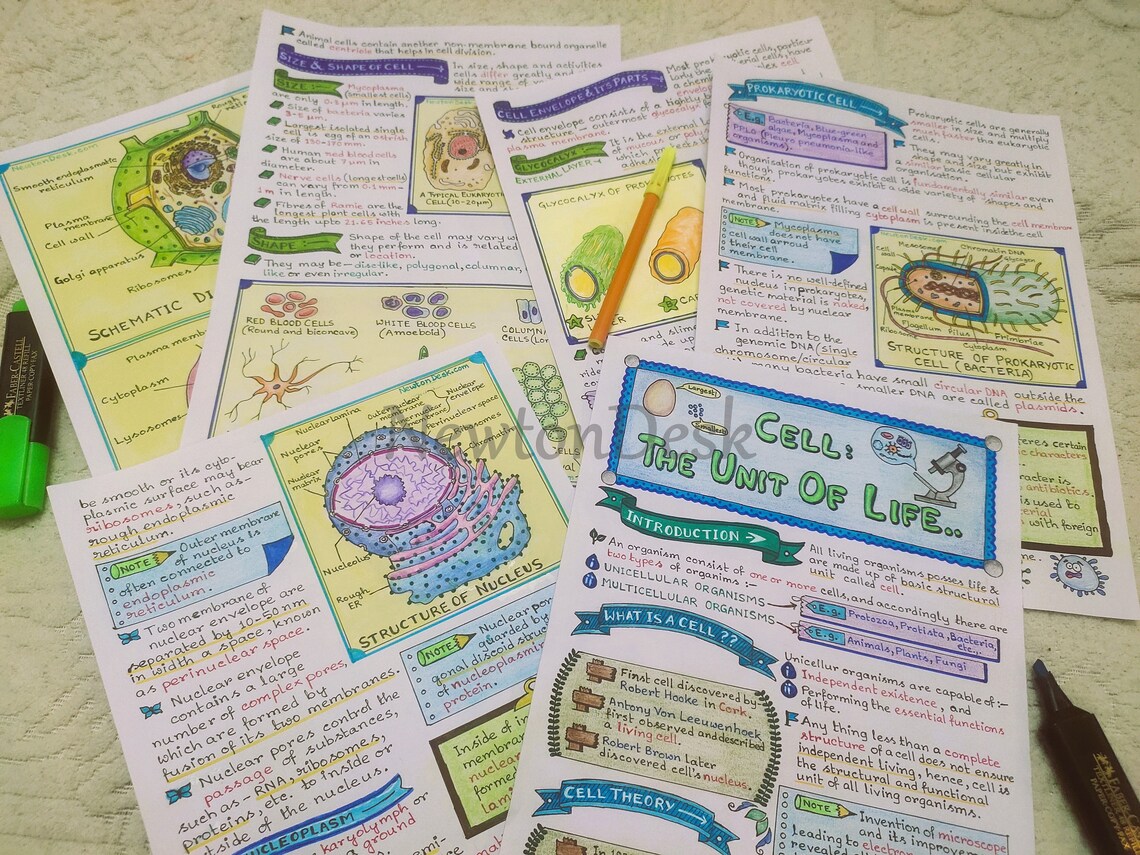 Animal cells contain another non-membrane bound organelle
called centriole that helps in cell division.
SIZE & SHAPE OF CELL
In size, shape and activities
cells differ greatly and
wide range of
size and
SIZE
Mycoplasma
(smallest cells)
are only 0.3 μm in length.
Size of bacteria varies
3-5 μm.
Largest isolated single
cell is egg of an ostrich
size of 150-170 mm.
Human red blood cells
are about 7 μm in
diameter.
Nerve cells (longest cells)
can vary from 0.1 mm-
1m in length.
Fibres of Ramie are the
longest plant cells with
the length upto 21.65 inches long.
A TYPICAL EUKARYOTIC
CELL (10-20μm)
SHAPE
Shape of the cell may vary
they perform and is related
or location.
They may be - disc-like, polygonal, columnar,
like or even irregular.
RED BLOOD CELLS
(Round and biconcave)
WHITE BLOOD CELLS
(Amoeboid)
COLUMN
CELLS (Lo
NewtonDesk.com
Rough
Smooth endoplasmic
reticulum
Plasma
membrane
Cell wall
Golgi apparatus
Ribosomes
SCHEMATIC DI
Plasma mem
Cytoplasm
Lysosomes
CELL ENVELOPE & ITS PARTS
Most prok
larly the
a chem
envelop
Cell envelope consists of a tightly b
structure - outermost glycocalyx
plasma membrane.
GLYCOCALYX
EXTERNAL LAYER
It is the external
mucous or poly
which
adhesi
GLYCOCALYX OF PRO
YOTES
SL
ER
CAP
and slime
PROKARYOTIC CELL
Prokaryotic cells are generally
smaller in size and multiply
much faster tha eukaryotic
cell.
E.g.
Bacteria, Blue-green
algae, Mycoplasma and
PPLO (Pleuro pneumonia-like
organisms).
They may vary greatly in
shape and size but exhibit
a similar basic cellular
organisation.
Organisation of prokaryotic cell is fundamentally similar even
though prokaryotes exhibit a wide variety of shapes and
functions.
Most prokaryotes have a cell wall surrounding the cell membrane
and fluid matrix filling cytoplasm is present inside the cell
membrane.
NOTE
Mycoplasma
does not have
cell wall arroud
their cell
membrane.
There is no well-defined
nucleus in prokaryotes,
genetic material is naked,
not covered by nuclear
membrane.
In addition to the
genomic DNA (single
chromosome/circular
many bacteria have small circular DNA outside the
smaller DNA are called plasmids.
Mesosome
Chromatin DNA
glycogen
Cell
wall
Capsule
Plasma
membrane
Ribosome
Flagellum
Pilus
Frimbriae
Cytoplasm
STRUCTURE OF PROKARYOTIC
CELL (BACTERIA)
eres certain
characters
racter is
antibiotics.
is used to
bacterial
with foreign
NewtonDesk
be smooth or its cyto-
plasmic surface may bear
ribosomes, such as -
rough endoplasmic
reticulum.
NOTE
Outer membrane
of nucleus is
often connected to
endoplasmic
reticulum.
Two membrane of
nuclear envelope are
separated by 10-50 nm
in width a space, know
as perinuclear space.
Nuclear envelope
contains a large
number of complex pores,
which are formed by
fusion of its two membranes.
Nuclear pores control the
passage of substances,
such as - RNA, ribosomes,
proteins, etc. to inside or
outside of the nucleus.
NUCLEOPLASM
karyolymph or
ground
NewtonDesk.com
Nuclear lamina
Outer nuclear
membrane
Nuclear
envelope
Perinuclear space
Ribosomes
Chromatin
Nuclear
pores
Nuclear
matrix
Nucleolus
Rough
ER
STRUCTURE OF NUCLEUS
NOTE
Nuclear por
guarded by
gonal discoid struc
of nucleoplasmin
protein.
Inside of in
membrane
nuclear
forme
lam
Largest
Smallest
CELL:
THE UNIT OF LIFE..
INTRODUCTION
All living organisms posses life &
are made up of basic structural
unit called cell.
An organism consist of one or more cells, and accordingly there are
two types of organims :-
UNICELLULAR ORGANISMS
MULTICELLULAR ORGANISMS
E.g.
Protozoa, Protista, Bacteria,
etc..
E.g.
Animals, Plants, Fungi
WHAT IS A CELL ??
First cell discovered by-
Robert Hooke in Cork.
Antony Von Leeuwenhoek
first observed and described
a living cell.
Robert Brown later
discovered cell's nucleus.
Unicellur organisms are capable of :-
Independent existence, and
Performing the essential functions
of life.
Any thing less than a complete
structure of a cell does not ensure
independent living, hence, cell is
the structural and functional
unit of all living organisms.
CELL THEORY
NOTE
Invention of microscope
and its improvem
leading to electron
revealed all
FABER-CASTELL
TEXTLINER 48 REFILL
PAPER COPY FAX